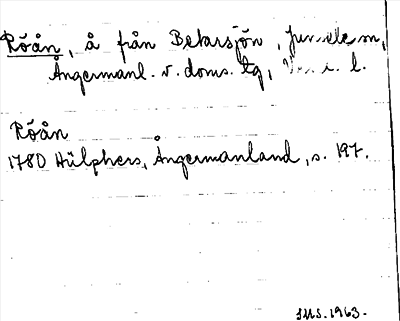 Röån, å från Betarsjön, Junsele sn,
Ångermanl. v. doms. tg, i. l.
Röån
1780 Hülphers, Ångermanland, s. 197.
1963.